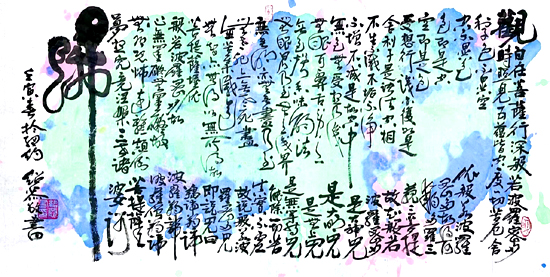 觀自在菩薩行深般若波羅蜜多
時照見五蘊皆空度一切苦厄舍
利子色不異空
空不異色
色即是空
空即是色
受想行識亦復如是
舍利子是諸法空相
不生不滅不垢不淨
不增不減是故空中
無色無受想行識
無眼耳鼻舌身意
無色聲香味觸法
無眼界乃至無
無無明亦無無明盡
乃至無老死亦無老死盡
無苦集滅道
無智亦無得以無所得故
菩提薩埵依
般若波羅蜜多故
心無罣礙無罣礙故
無有恐怖遠離顛倒
夢想究竟涅槃三世諸
佛
依般若波羅
蜜多故得阿
耨多羅三
藐三菩提
故知般若
波羅蜜多
是大神咒
是大明咒
是無上咒
是無等等咒
能除一切苦
真實不虛
故說般若波
羅蜜多咒
即說咒曰
揭諦揭諦
波羅揭諦
波羅僧揭諦
菩提薩
婆訶
壬寅春於紐約